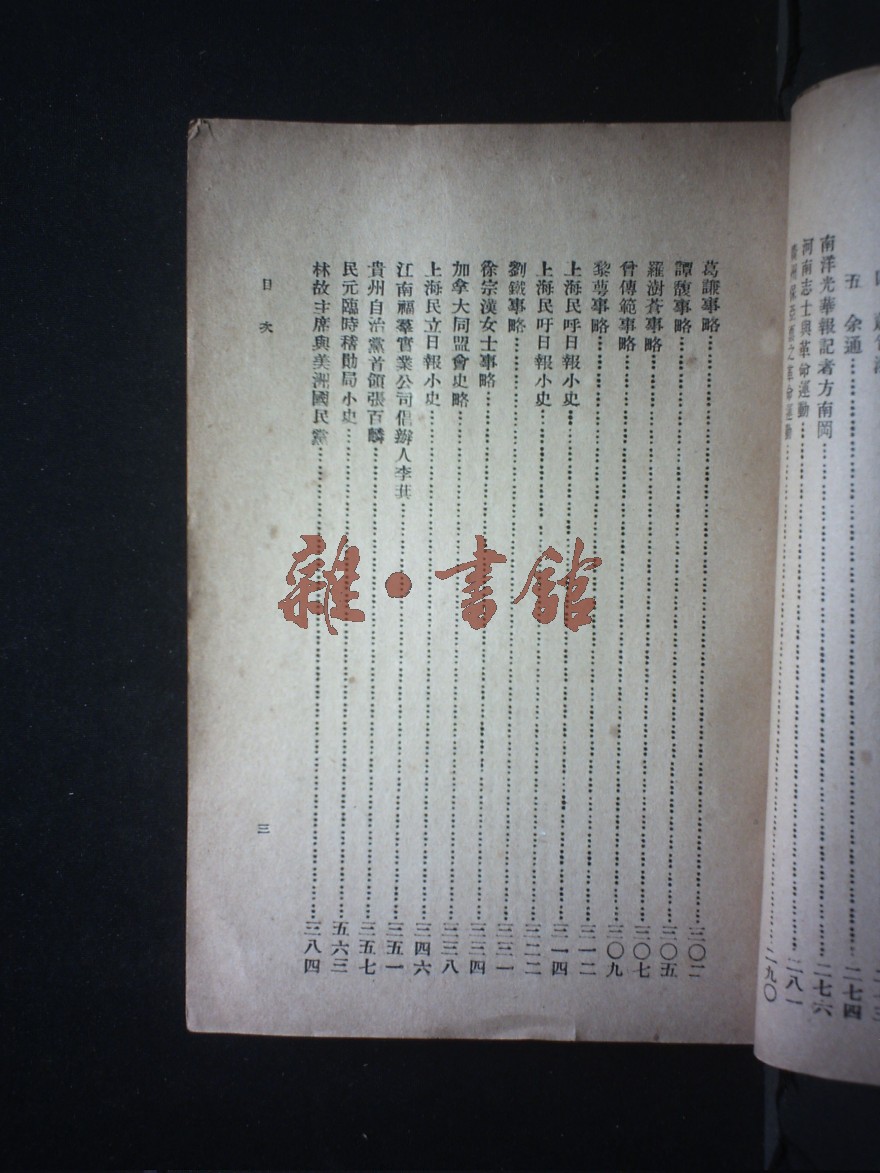 五 余通……二七四
南洋光華報記者方南岡……二七六
河南志士與革命運動……二八一
之革命運動……二九〇
葛謙事略……三〇二
譚馥事略……三〇五
羅樹蒼事略……三〇七
曾傳範事略……三〇九
黎萼事略……三一二
上海民呼日報小史……三一四
上海民吁日報小史……三二二
劉鐵事略……三三一
徐宗漢女士事略……三三四
加拿大同盟會史略……三三八
上海民立日報小史……三四六
江南福羣實業公司倡辦人李……三五一
貴州自治黨首領張百麟……三五七
民元臨時稽勛局小史……五六三
林故主席與美洲國民黨……三八四
目次
三
雜·書館